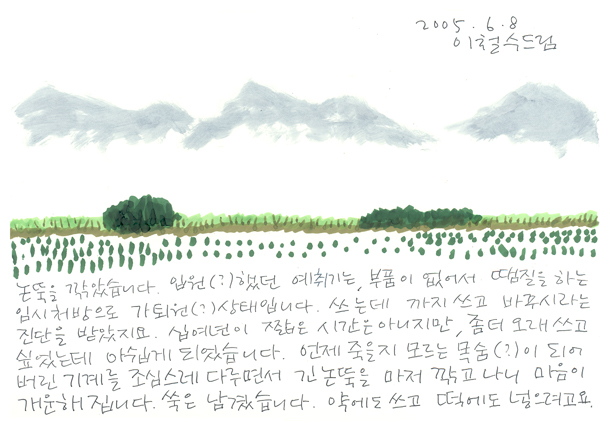 2005. 6. 8
이철수드림
논뚝을 깎았습니다. 입원(?)했던 예취기는, 부품이 없어서 땜질을 하는
임시처방으로 가퇴원(?)상태입니다. 쓰는데 까지 쓰고 바꾸시라는
진단을 받았지요. 십여년이 짧은 시간은아니지만, 좀더 오래 쓰고
싶었는데 아쉽게 되었습니다. 언제 죽을지 모르는 목숨(?)이 되어
버린 기계를 조심스레 다루면서 긴 논뚝을 마저 깎고 나니 마음이
개운해 집니다. 쑥은 남겼습니다. 약에도 쓰고 떡에도 넣으려고요.